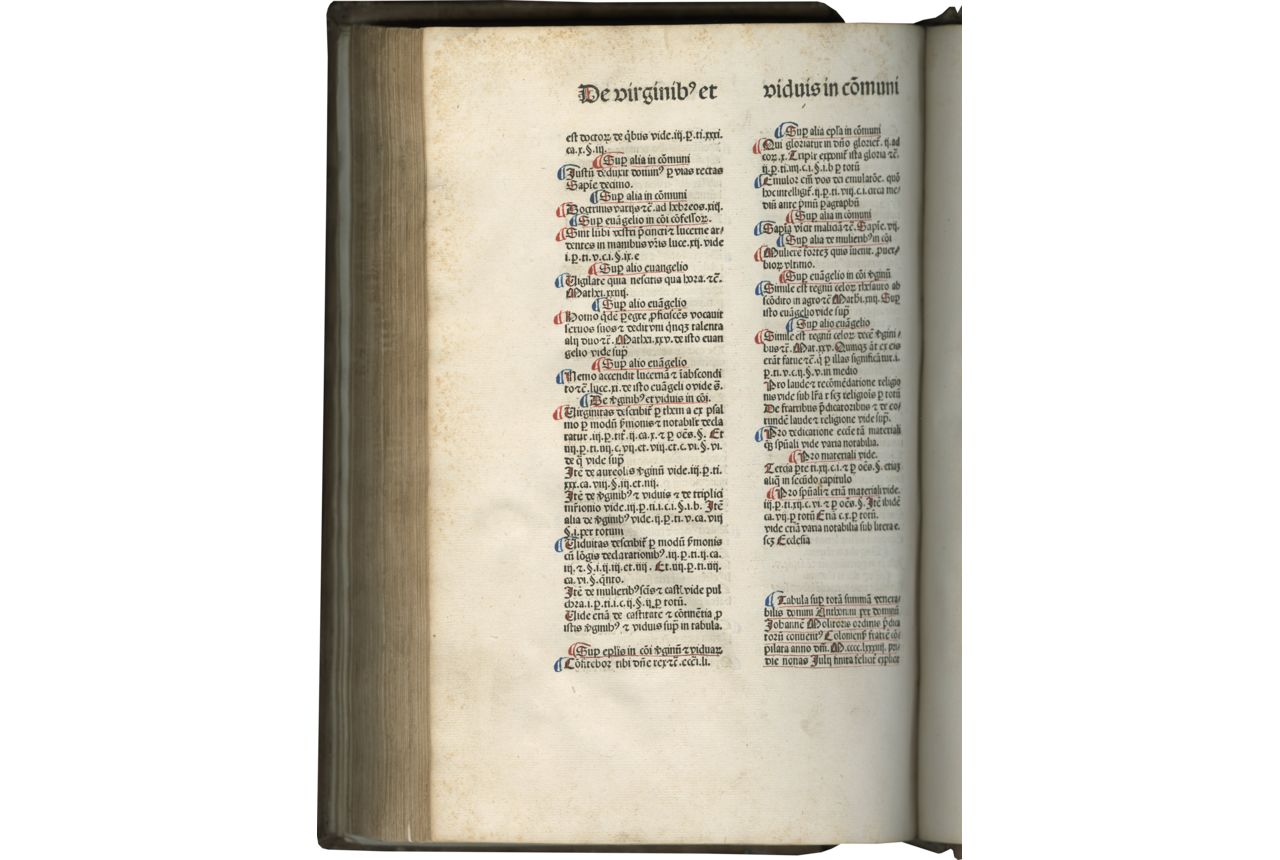 De virginibꝰ et
viduis in cōmuni
est doctoꝝ de q̄bus vide .iij. p̲. ti. xxxi.
ca. x. §. iij.
Suꝑ alia in cōmuni
Justū deduxit dominꝰ ꝑ vias rectas
Sapīe decimo.
Suꝑ alia in cōmuni
Doctrinis varijs ⁊c̄. ad hebreos. xiij.
Suꝑ euāgelio in cōi cōfessoꝝ.
Sint lūbi vestri p̄cincti ⁊ lucerne ar⸗
dentes in manibus vr̄is luce. xij. vide
.i. p̲. ti. v. c. i. §. ix. e
Suꝑ alio euangelio
Uigilate quia nescitis qua hora. ⁊c̄.
Mathei. xxiiij.
Suꝑ alio euāgelio
Homo q̄dē ꝑegre ꝓficiscēs vocauit
seruos suos ⁊ dedit vni qnqꝫ talenta
alij duo ⁊c̄. Mathei. xxv. de isto euan
gelio vide suꝑ
Suꝑ alio euāgelio
Nemo accendit lucernā ⁊ ī abscondi
to ⁊c̄. luce. xi. de isto euāgelio vide s̄.
De v̄ginibꝰ et viduis in cōi.
Uirginitas describit̄ ꝑ thema ex psal
mo ꝑ modū ẜmonis ⁊ notabilr̄ decla
ratur .iij. p̲. tit̄. ij. ca. x. ⁊ ꝑ oēs. §. Et
iiij. p̲. ti. iiij. c. vij. et. viij. et. c. vi. §. vi.
de q̄ vide suꝑ
Itē de aureolis v̄ginū vide. iij. p̲. ti.
xxx. ca. viij. §. iij. et. iiij.
Itē de v̄ginibꝰ ⁊ viduis ⁊ de triplici
mr̄imonio vide. iij. p̲. ti. i. c. i. §. i. b. Itē
alia de v̄ginibꝰ vide. ij. p̲. ti. v. ca. viij
§. i. per totum
Uiduitas describit̄ ꝑ modū ẜmonis
cū lōgis declarationibꝰ. iij. p̲. ti. ij. ca.
iij. ⁊. §. i. ij. iij. et. iiij. Et. iiij. p̲. ti. iiij.
ca. vi. §. q̄nto.
Itē de mulieribꝰ scīs ⁊ cast̄. vide pul
chra. i. p̲. ti. i. c. ij. §. ij. ꝑ totū.
Uide etiā de castitate ⁊ cōtinētia ꝓ
istis v̄ginibꝰ ⁊ viduis suꝑ in tabula.
Suꝑ epl̄is in cōi v̄ginū ⁊ viduaꝝ
Confitebor tibi dn̄e rex ⁊c̄. ecc̄i. li.
Suꝑ alia epl̄a in cōmuni
Qui gloriatur in dn̄o gloriet̄. ij. ad
coꝝ. x. Triplr̄ exponit̄ ista gloria ⁊c̄.
ij. p̲. ti. iiij. c. i. §. i. b ꝑ totū
Emulor em̄ vos dei emulatōe. quō
hoc intelligit̄. ij. p̲. ti. viij. c. i. circa me⸗
diū ante pmū paragraphū
Suꝑ alia in cōmuni
Sapīa vicit maliciā ⁊c̄. Sapīe. vij.
Suꝑ alia de mulieribꝰ in cōi
Mulierē fortez quis īueniet. ꝓuer⸗
bioꝝ vltimo.
Suꝑ euāgelio in cōi v̄ginū
Simile est regnū celoꝝ thesauro ab
scōdito in agro ⁊c̄ Mathei. xiij. Suꝑ
isto euāgelio vide suꝑ
Suꝑ alio euāgelio
Simile est regnū celoꝝ decē v̄gini⸗
bus ⁊c̄. Mat. xxv. Quinqꝫ āt ex eis
erāt fatue ⁊c̄. q̄ ꝑ illas significātur. i.
p̲. ti. v. c. ij. §. v. in medio
Pro laude ⁊ recōmēdatione religio
nis vide sub lr̄a r scꝫ religiois ꝑ totū
De fratribus p̄dicatoribus ⁊ de eo⸗
rundē laude ⁊ religione vide suꝑ.
Pro dedicatione eccl̄e tā materiali
qꝫ spūali vide varia notabilia.
Pro materiali vide.
Tercia ꝑte ti. xij. c. i. ⁊ ꝑ oēs. §. etiaꝫ
aliq̄ in secūdo capitulo
Pro spūali ⁊ etiā materiali vide.
iij. p̲. ti. xij. c. vi. ⁊ ꝑ oēs. §. Itē ibidē
ca. vij. ꝑ totū Etiā c. x. ꝑ totū.
vide etiā varia notabilia sub litera e.
scꝫ Ecclesia
Tabula suꝑ totā summā venera⸗
bilis domini Anthonini per dominū
Johannē Molitoris ordinis p̄dica
torū conuentꝰ Coloniensꝭ fratrē cō⸗
pilata anno dn̄i. M. cccc. lxxxiiij. pri⸗
die nonas Julij finita felicit̄ explicit